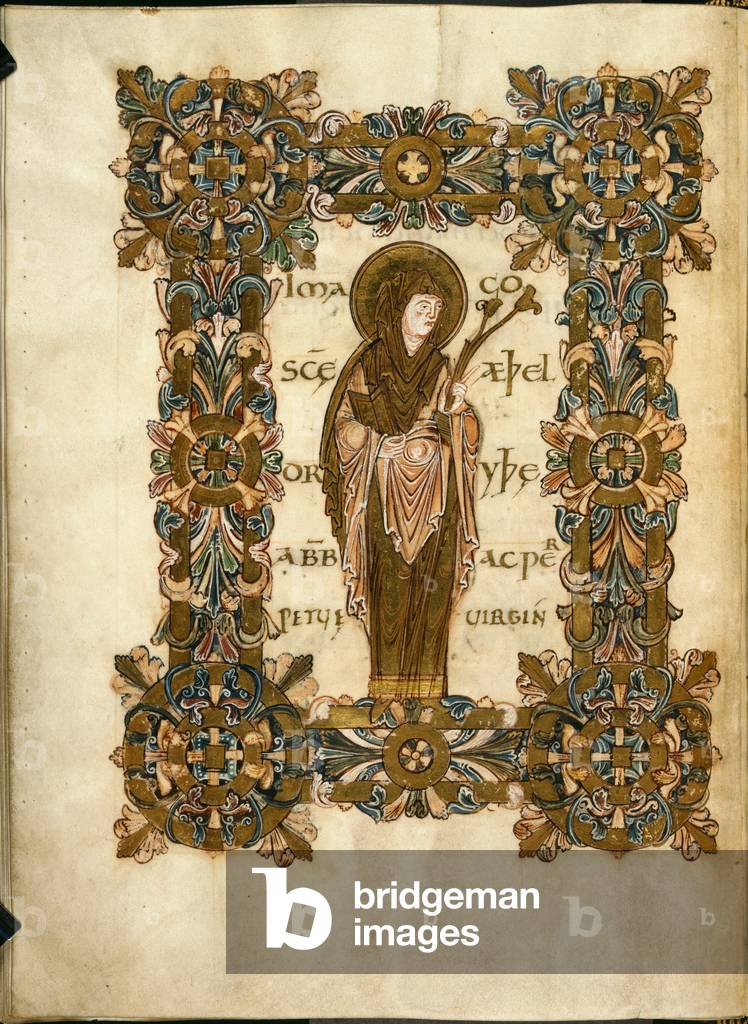 IMA CO
SC̄Ę ÆÞEL
DR YÞĘ
ABB̄ AC PER
PETUĘ UIRGIN̄
b bridgeman
images